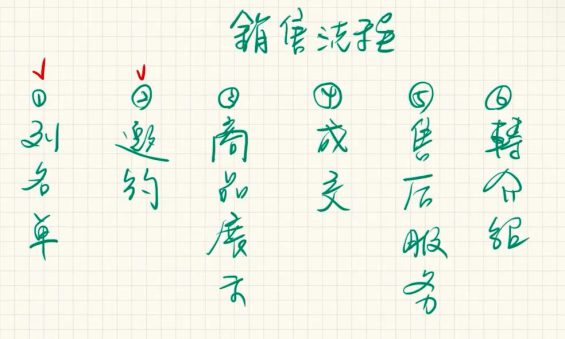 銷售流程
①列名單
②邀約
③商品展示
④成交
⑤售后服务
⑥轉介紹